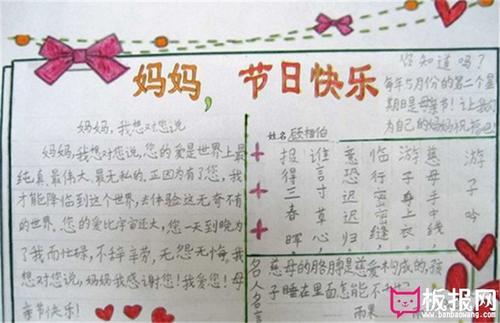 妈妈，节日快乐
您知道吗？
每年5月份的第二个星
期日是母亲节！让我们
为自己的妈妈祝福吧！
妈妈，我想对您说
妈妈，我想对您说，您的爱是世界上最
纯真、最伟大、最无私的。正因为有了您，我
才能降临到这个世界，去体验这无奇不有
的世界。您的爱比宇宙还大，您一天到晚为
了我而忙碌，不辞辛劳，无怨无悔，我
想对您说，妈妈我感谢您！我爱您！母
亲节快乐！
姓名
游子吟
慈母手中线
游子身上衣
临行密密缝
意恐迟迟归
谁言寸草心
报得三春晖
名人名言
慈母的胳膊是慈爱构成的，孩
子睡在里面怎能不
雨果
板报网
www.banbaowang.com